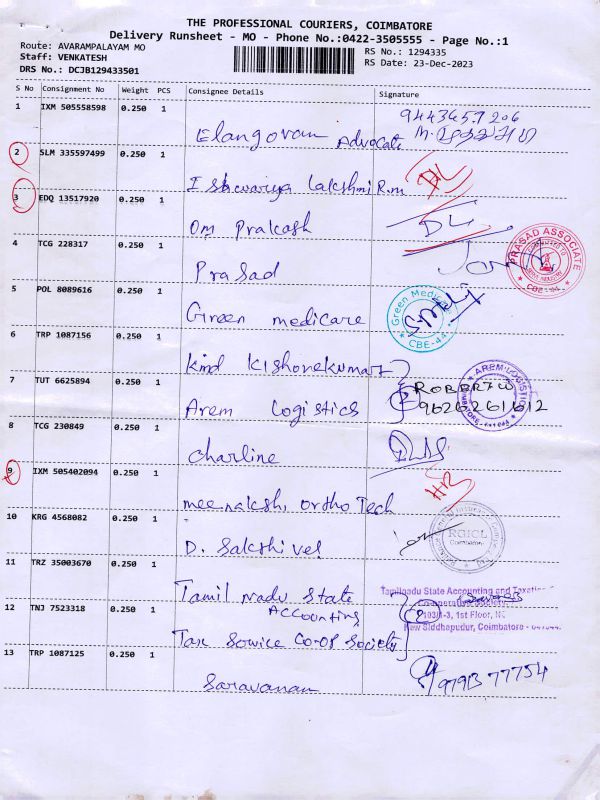 THE PROFESSIONAL COURIERS, COIMBATORE
Delivery Runsheet - MO - Phone No.:0422-3505555 - Page No.:1
Route: AVARAMPALAYAM MO
Staff: VENKATESH
DRS No.: DCJB129433501
RS No.: 1294335
RS Date: 23-Dec-2023
S No Consignment No Weight PCS Consignee Details Signature
1 IXM 505558598 0.250 1
Elangovan Advocate
9443657206
2 SLM 335597499 0.250 1
Ishwariya Lakshmi R.m DL
3 EDQ 13517920 0.250 1
Om Prakash DL
4 TCG 228317 0.250 1
Prasad
PRASAD ASSOCIATE
CBE-44
5 POL 8089616 0.250 1
Green medicare
Green Medicare
CBE-44
6 TRP 1087156 0.250 1
kind kishorekumar
7 TUT 6625894 0.250 1
Arem Logistics
ROBERT
9626261612
AREM LOGISTICS
8 TCG 230849 0.250 1
charline
9 IXM 505402094 0.250 1
meenakshi ortho Tech
10 KRG 4568082 0.250 1
D. Sakthivel
RGICL
Coimbatore
11 TRZ 35003670 0.250 1
Tamil nadu State
Accounting
Tamilnadu State Accounting and Taxation
Co-operative Society,
1st Floor,
New Siddhapudur, Coimbatore -
12 TNJ 7523318 0.250 1
Tax Service CO-OP Society
13 TRP 1087125 0.250 1
Saravanan